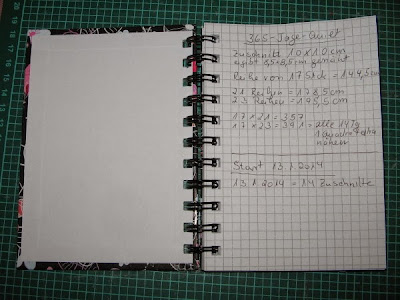 365-Tage-Quilt
Zuschnitt 10 x 10 cm
ergibt 8,5 x 8,5 cm genäht
Reihe von 17 Stck = 144,5 cm
21 Reihen = 178,5 cm
23 Reihen = 195,5 cm
17 x 21 = 357
17 x 23 = 391 = alle 14 Tg
1 Quadrat
nähen
Start 13.1.2014
13.1.2014 = 14 Zuschnitte